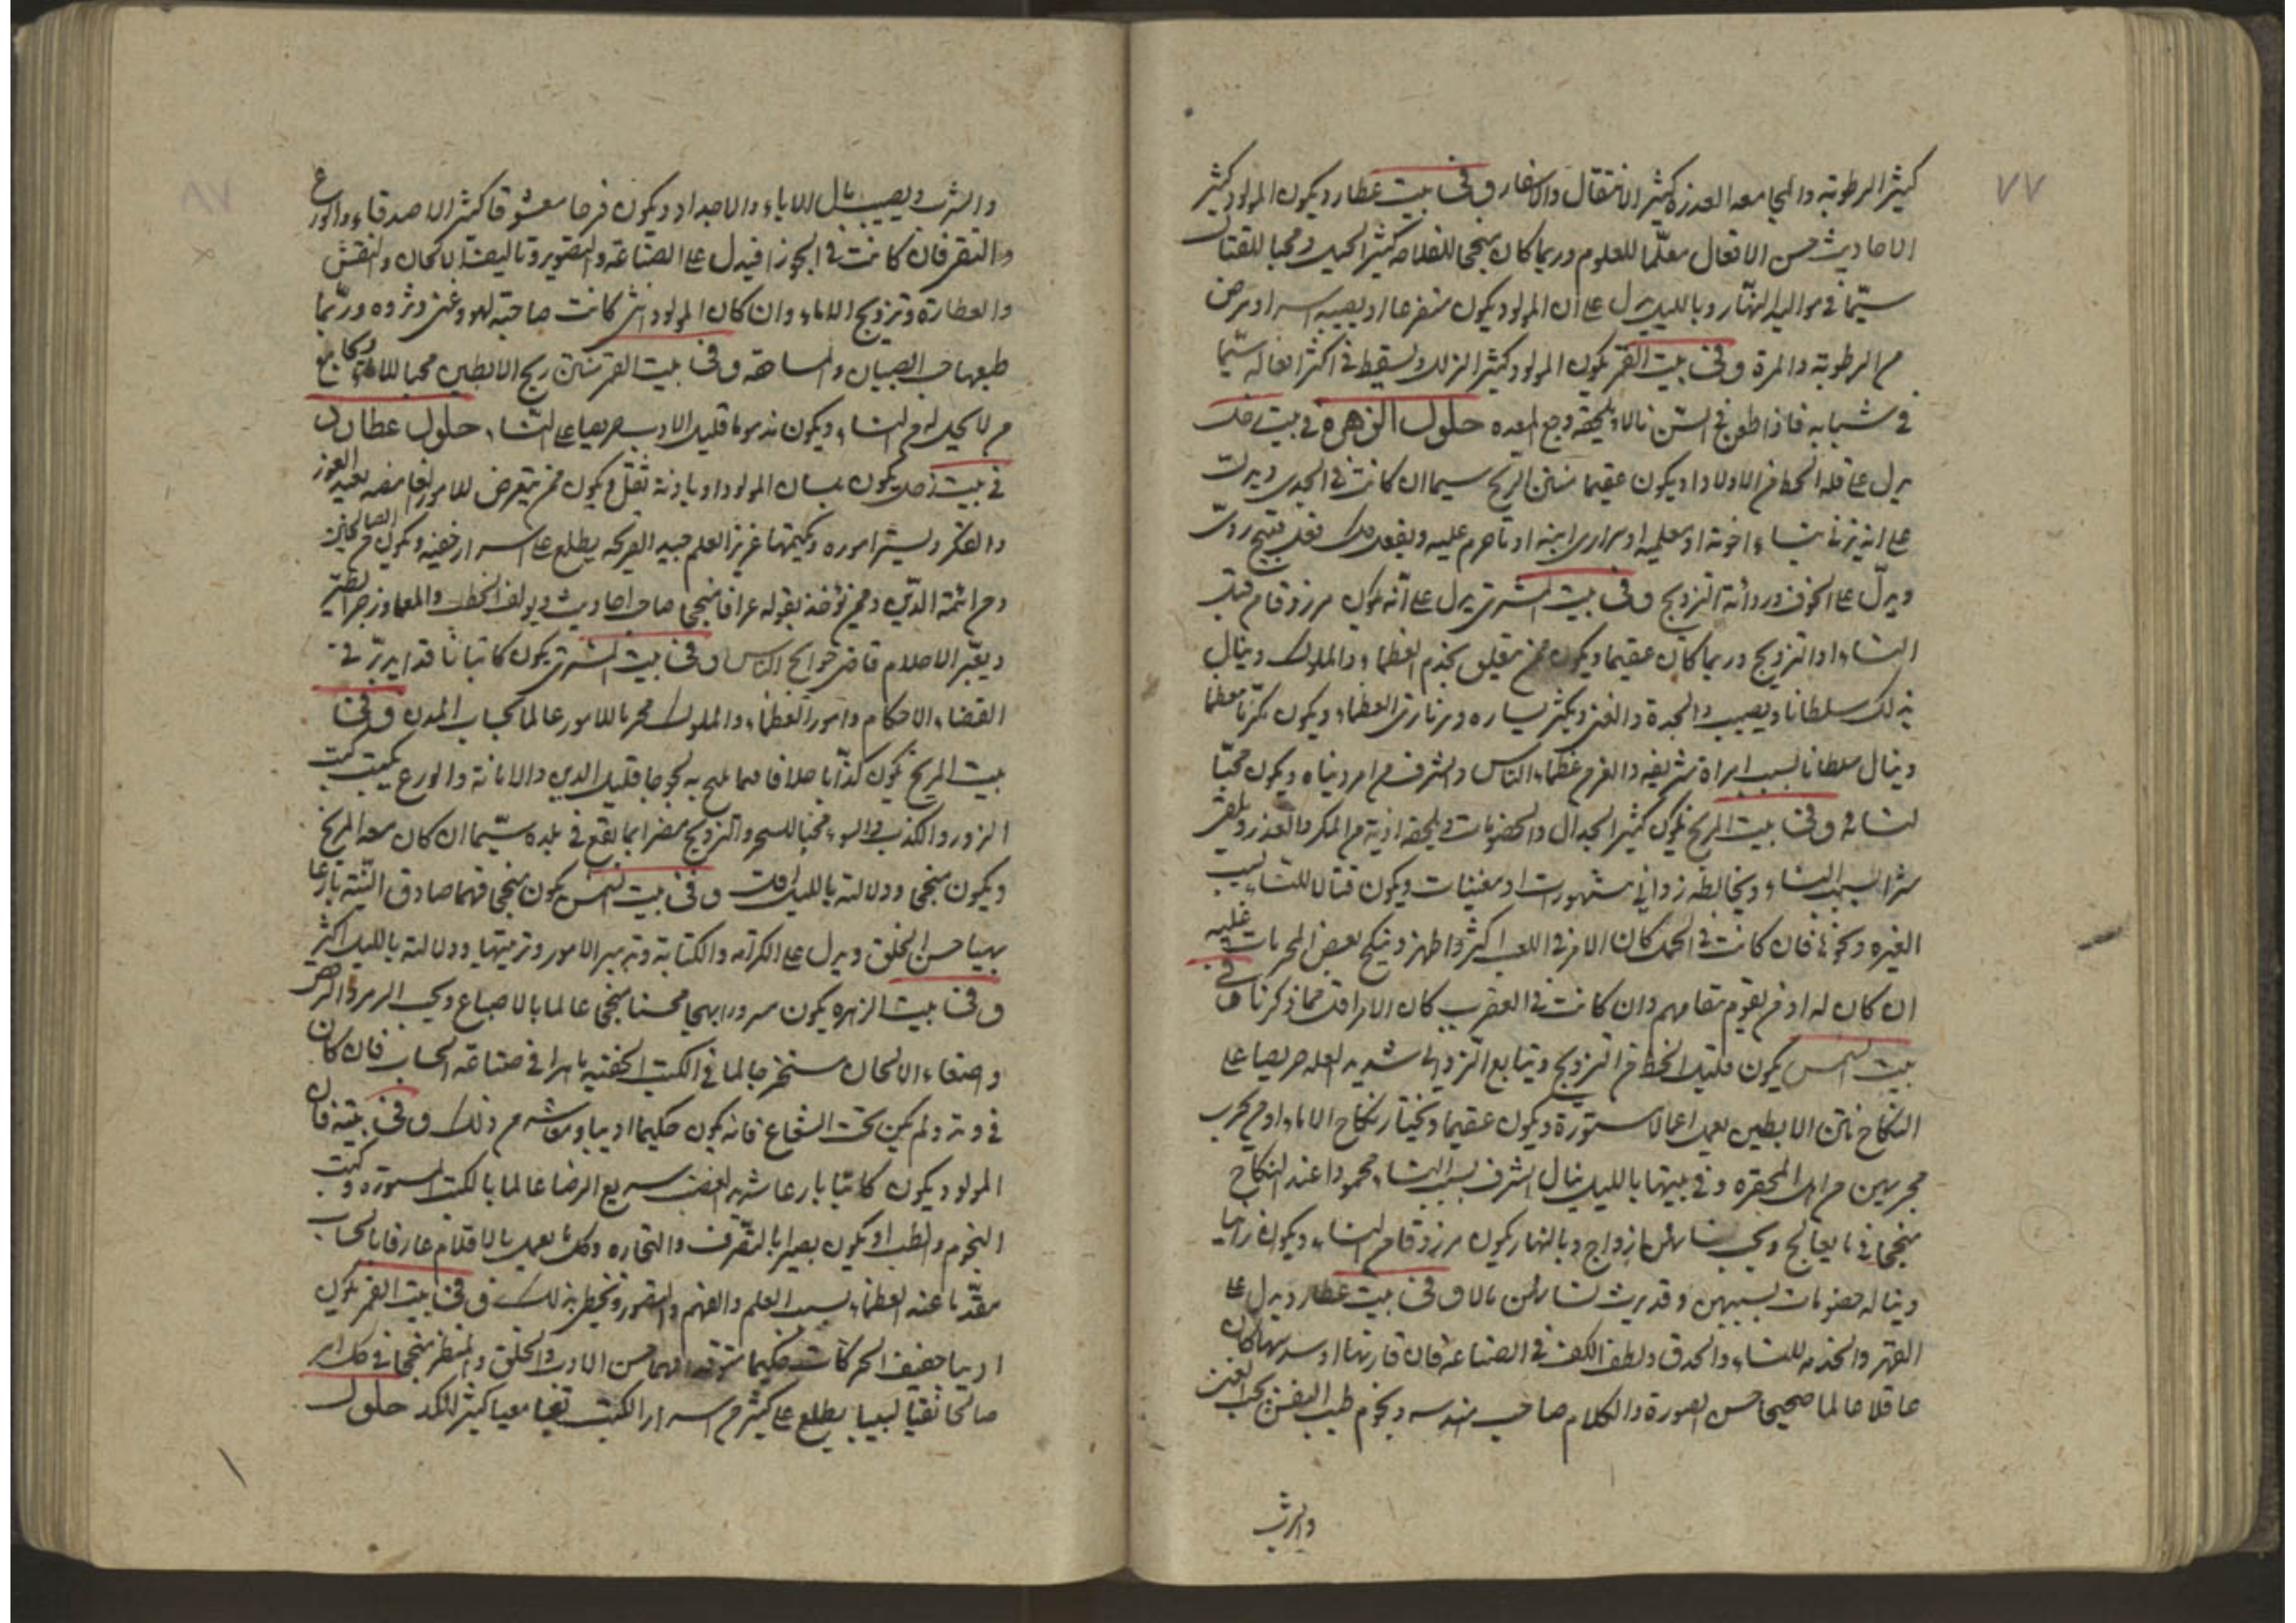 ٧٧
كثير الرطوبة والمجامعه العذرة كثير الانتقال والاسفار و في بيت عطارد يكون المولود كثير
الاحاديث حسن الافعال معلّما للعلوم وربما كان منجما للفلاحه كثير الحيل ومحبا للقتال
سيّما في مواليد النهار وبالليل يدل على ان المولود يكون متفرعا او يصيبه اسر او مرض
من الرطوبة والمرة و في بيت القمر يكون المولود كثير الزلل ويسقط في اكثر افعاله سيّما
في شبابه فاذا طعن في السن نال ويلحقه وجع المعده حلول الزهرة في بيت زحل
يدل على قلة الحظ من الاولاد او يكون عقيما منتن الريح سيما ان كانت في الجدي ويدل
على انه يزني بنساء اخوته او معلميه او سراري ابيه او ما حرم عليه ويفعل كل فعل قبيح ردئ
ويدلّ على الخوف ورداءة التزويج و في بيت المشتري يدل على انّه يكون مرزوقا من قبل
النساء او التزويج وربما كان عقيما ويكون ممن يتعلق بخدم العظماء والملوك وينال
بذلك سلطانا ويصيب الجدة والغنى ويكثر يساره ويرزق من العظماء ويكون مكرّما معظما
وينال سلطانا بسبب امراة شريفه والغرم عظماء الناس والشرف من امر دنياه ويكون محبّا
لنسائه و في بيت المريخ يكون كثير الجدال والخصومات ويلحقه اذية من المكر والغدر ويلقى
شرا بسبب النساء ويخالطه زواني مشهورات او مغنيات ويكون قتالا للنساء بسبب
الغيره ونحوها فان كانت في الحمل كان الامر في اللعب اكثر واظهر وينكح بعض المحرمات عليه
ان كان له او من يقوم مقامهم وان كانت في العقرب كان الامر اقل مما ذكرنا و في
بيت الشمس يكون قليل الحظ من التزويج ويتابع التزويج شديد الغلمه حريصا على
النكاح نتن الابطين يعمل اعمالا مستورة ويكون عقيما ويختار نكاح الاماء او من يجري
مجريهن من اهل المحقره وفي بيتها بالليل ينال الشرف بسبب النساء محمودا عند النكاح
منجحا في ما يعالج ويحب نساءهن ازواج وبالنهار يكون مرزوقا من النساء ويكون زانيا
ويناله خصومات بسببهن وقد يرث نساء لهن مالا و في بيت عطارد يدل على
القهر والخدمه للنساء والحذق ولطف الكف في الصناعه فان قارنها او سدسها كان
عاقلا عالما صحيحا حسن الصورة والكلام صاحب هندسه ونجوم طيب النفس يحب الغنى
والشرب
والشرب ويصيب مال الاباء والاجداد ويكون فرحا معشوقا كثير الاصدقاء والورع
والنقر فان كانت في الجوزا فيدل على الصناعة والتصوير وتاليف الالحان والنقش
والعطارة وتزويج الاماء وان كان المولود انثى كانت صاحبة لهو وغنى وثروه وربّما
طبعها حب الصبيان والمساحقه و في بيت القمر منتن ريح الابطين محبا للاماء ونكاح
من لا يحل له من النساء ويكون مذموما قليل الادب حريصا على النساء حلول عطارد
في بيت زحل يكون بلسان المولود او باذنه ثقل ويكون ممن يتعرض للامور الغامضه بعيد الغور
والفكر ويستر اموره ويكتمها غزير العلم جيد القريحه يطلع على اسرار خفيه ويكون من الصالحين
ومن ائمة الدين وممن يؤخذ بقوله عرافا منجما صاحب احاديث ويولف الخطب والمعما وزجر الطير
ويعبّر الاحلام قاضي حوائج الناس و في بيت المشتري يكون كاتبا ناقدا يدبّر في
القضاء والاحكام وامور العظماء والملوك مجربا للامور عالما بحساب المدن و في
بيت المريخ يكون كذّابا حلافا فيما يلج به لجوجا قليل الدين والامانة والورع يكتب كتب
الزور والكذب والسوء محبا للسحر والتزويج مضرا بما يقع في يده سيّما ان كان معه المريخ
ويكون منجما ودلالته بالليل اقل و في بيت الشمس يكون منجما فهما صادق النية بارعا
بهيا حسن الخلق ويدل على الكرامه والكتابة وتدبير الامور وتزيينها ودلالته بالليل اكثر
و في بيت الزهره يكون مسرورا بهجا محسنا منجما عالما بالاصباغ ويحب الزمر والرقص
واصغاء الالحان مستخرجا لما في الكتب الخفيه ماهرا في صناعة الحساب فان كان
في وتد ولم يكن تحت الشعاع فانه يكون حكيما اديبا ومعاشه من ذلك و في بيته فان
المولود يكون كاتبا بارعا شديد الغضب سريع الرضا عالما بالكتب المستورة وكتب
النجوم والطب او يكون بصيرا بالتصرف والتجاره وكل ما يعمل بالاقلام عارفا بالحساب
مقدّما عند العظماء بسبب العلم والفهم والتصور ويحظى بذلك و في بيت القمر يكون
اديبا خفيف الحركات حكيما متوقدا فهما حسن الادب والخلق والمنظر منجحا في كل امر
صالحا تقيا لبيبا يطلع على كثير من اسرار الكتب كثير الكد حلول